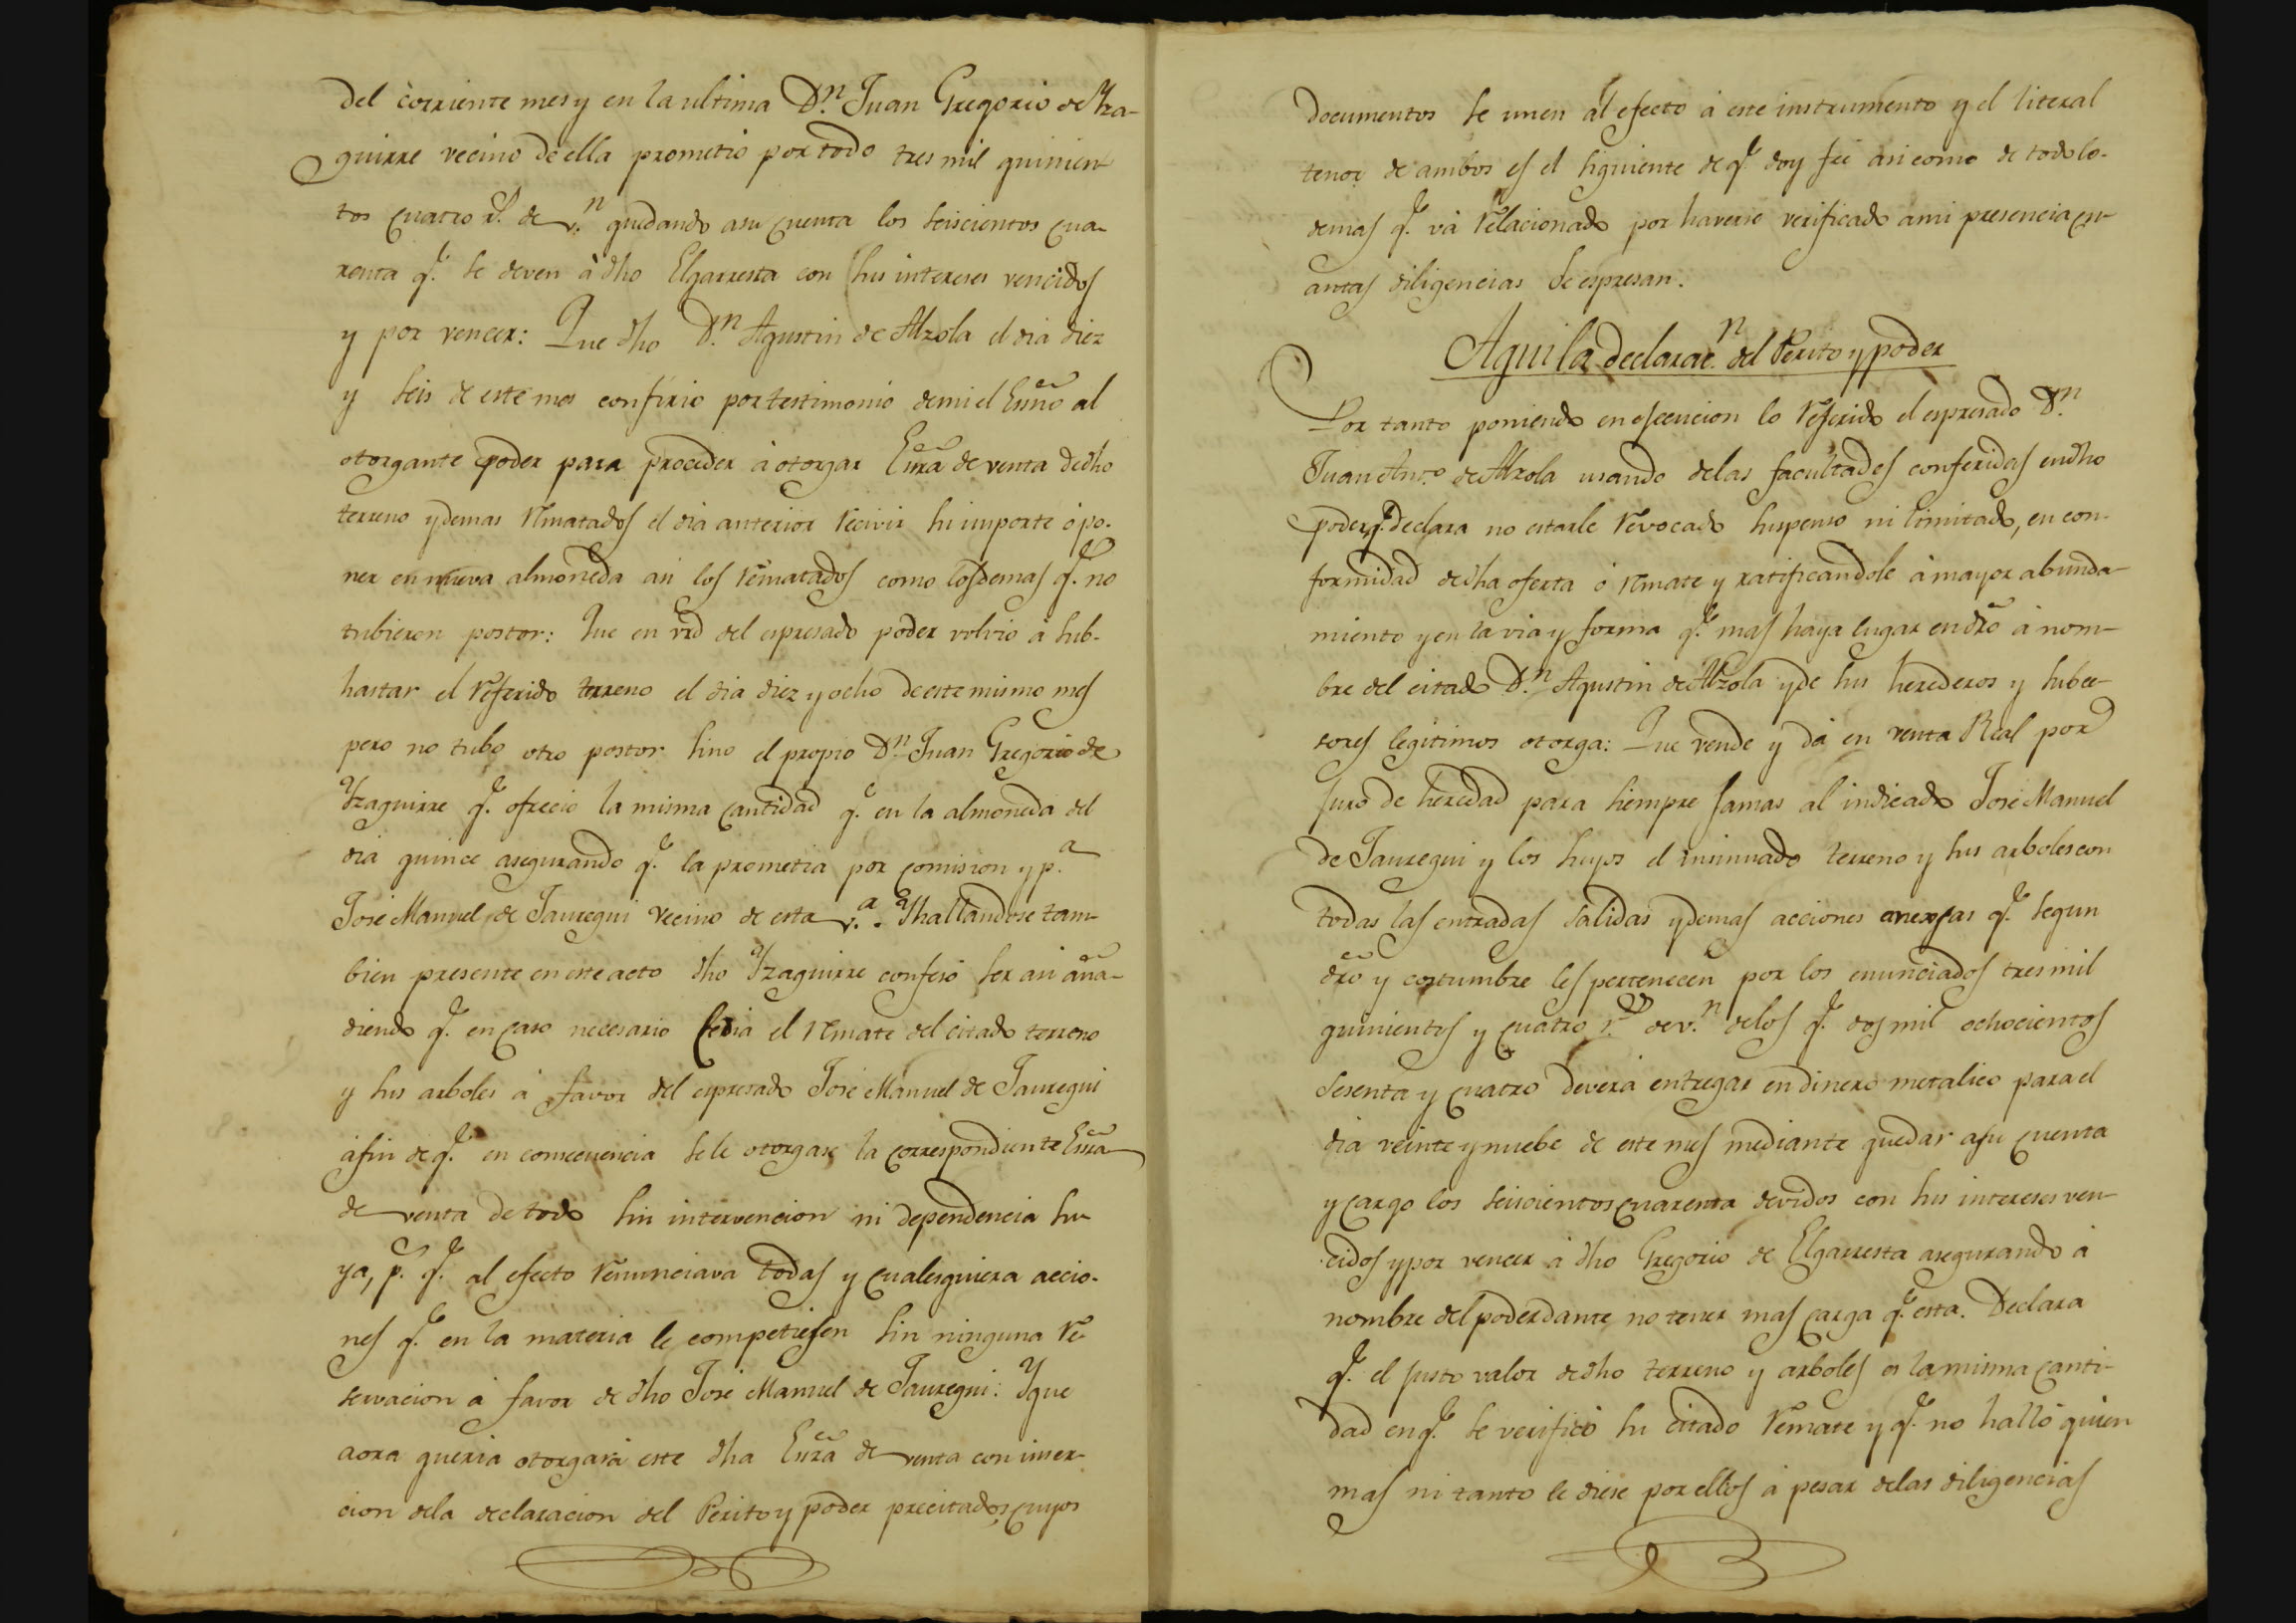 del corriente mes y en la ultima D.n Juan Gregorio de Yza-
guirre vecino de ella prometio por todo tres mil quinien
tos cuatro r.s de v.n quedando asu cuenta los seiscientos cua-
renta q.e se deven à dho Elgarresta con sus intereses vencidos
y por vencer: Que dho D.n Agustin de Alzola el dia diez
y seis de este mes confirio por testimonio de mi el Essno al
otorgante poder para proceder à otorgar Essra de venta de dho
terreno y demas rematados el dia anterior recivir su importe ó po-
ner en nueva almoneda asi los rematados como los demas q.e no
tubieron postor: Que en vrd del espresado poder volvio à sub-
hastar el referido terreno el dia diez y ocho de este mismo mes
pero no tubo otro postor sino el propio D.n Juan Gregorio de
Yzaguirre q.e ofrecio la misma cantidad q.e en la almoneda del
dia quince asegurando q.e la prometia por comision y p.a
José Manuel de Jauregui vecino de esta v.a: Y hallandose tam-
bien presente en este acto dho Yzaguirre confesó ser asi aña-
diendo q.e en caso necesario cedia el remate del citado terreno
y sus arboles à favor del espresado José Manuel de Jauregui
àfin de q.e en consecuencia se le otorgase la correspondiente Essra
de venta de todo sin intervencion ni dependencia su-
ya, p.s q.e al efecto renunciava todas y cualesquiera accio-
nes q.e en la materia le competiesen sin ninguna re-
servacion à favor de dho José Manuel de Jauregui: Y que
aora queria otorgará este dha Essra de venta con inser-
cion dela declaracion del Perito y poder precitados, cuyos
documentos se unen àl efecto à este instrumento y el literal
tenor de ambos es el siguiente de q.e doy feé asi como de todo lo-
demas q.e và relacionado por haverse verificado àmi presencia cu-
antas diligencias se espresan.
Aqui la declarac.n del Perito y poder
Por tanto poniendo en ejecucion lo referido el espresado D.n
Juan Ant.o de Alzola usando delas facultades conferidas en dho
poder, q.e declara no estarle revocado suspenso ni limitado, en con-
formidad de dha oferta ó remate y ratificandole à mayor abunda-
miento y en la via y forma q.e mas haya lugar en dro à nom-
bre del citado D.n Agustin de Alzola y de sus herederos y subce-
sores legitimos otorga: Que vende y dà en venta Real por
juro de heredad para siempre jamas al indicado José Manuel
de Jauregui y los suyos el insinuado terreno y sus arboles con
todas las entradas salidas y demas acciones anexas q.e segun
dro y costumbre les pertenecen por los enunciados tres mil
quinientos y cuatro r.s de v.n delos q.e dos mil ochocientos
sesenta y cuatro deverá entregar en dinero metalico para el
dia veinte y nuebe de este mes mediante quedar asu cuenta
y cargo los seiscientos cuarenta devidos con sus intereses ven-
cidos y por vencer à dho Gregorio de Elgarresta asegurando à
nombre del poderdante no tener mas carga q.e esta. Declara
q.e el justo valor de dho terreno y arboles es la misma canti-
dad en q.e se verificó su citado remate y q.e no halló quien
mas ni tanto le diese por ellos à pesar delas diligencias